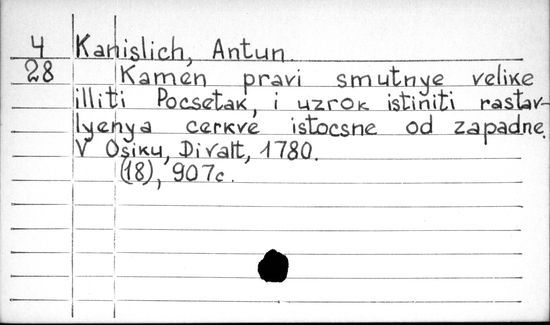 4 Kanislich, Antun
28 Kamen pravi smutnye velike
illiti Pocsetak, i uzrok istiniti rastav-
lyenya cerkve istocsne od zapadne.
V Osiku, Divalt, 1780.
(18), 907c.